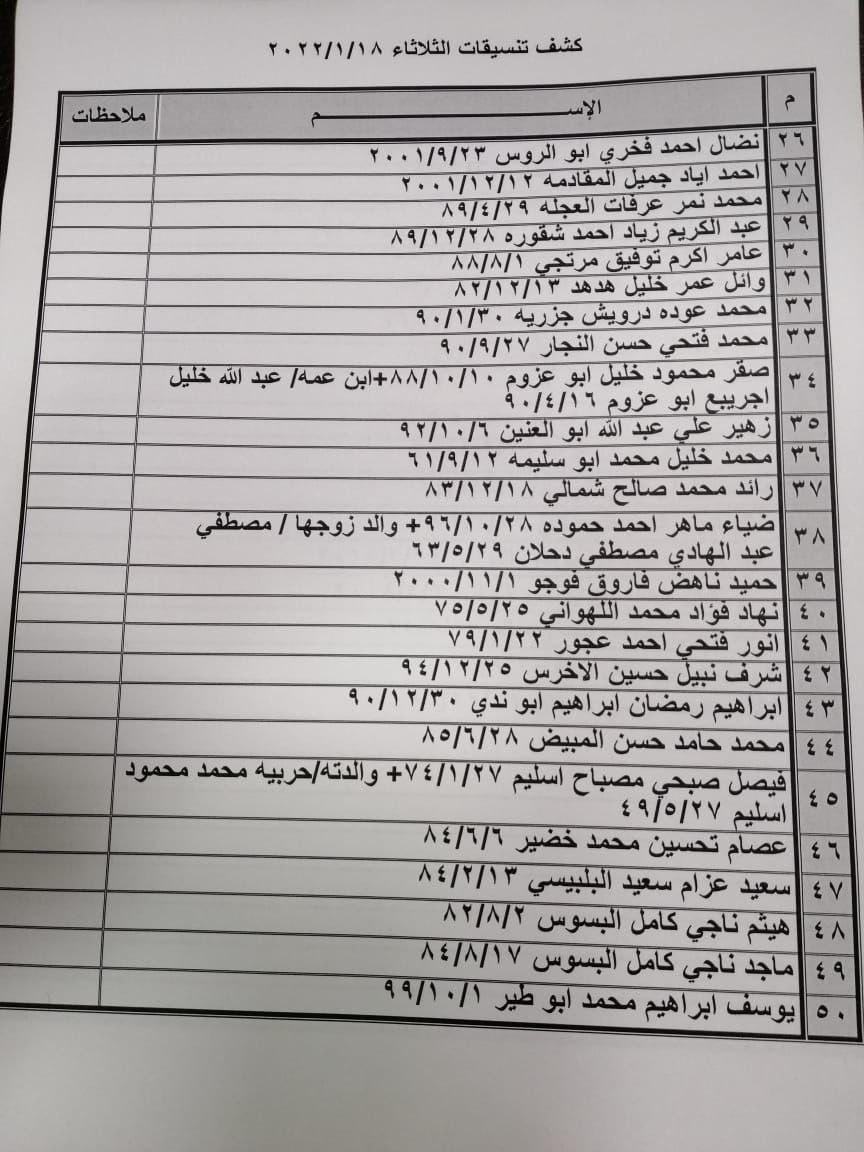 كشف تنسيقات الثلاثاء ٢٠٢٢/١/١٨
م الإســـــم ملاحظات
٢٦ نضال احمد فخري ابو الروس ٢٠٠١/٩/٢٣
٢٧ احمد اياد جميل المقادمه ٢٠٠١/١٢/١٢
٢٨ محمد نمر عرفات العجله ٨٩/٤/٢٩
٢٩ عبد الكريم زياد احمد شقوره ٨٩/١٢/٢٨
٣٠ عامر اكرم توفيق مرتجي ٨٨/٨/١
٣١ وائل عمر خليل هدهد ٨٢/١٢/١٣
٣٢ محمد عوده درويش جزريه ٩٠/١/٣٠
٣٣ محمد فتحي حسن النجار ٩٠/٩/٢٧
٣٤ صقر محمود خليل ابو عزوم ٨٨/١٠/١٠+ابن عمه/ عبد الله خليل
اجريبع ابو عزوم ٩٠/٤/١٦
٣٥ زهير علي عبد الله ابو العنين ٩٢/١٠/٦
٣٦ محمد خليل محمد ابو سليمه ٦١/٩/١٢
٣٧ رائد محمد صالح شمالي ٨٣/١٢/١٨
٣٨ ضياء ماهر احمد حموده ٩٦/١٠/٢٨+ والد زوجها / مصطفي
عبد الهادي مصطفي دحلان ٦٣/٥/٢٩
٣٩ حميد ناهض فاروق فوجو ٢٠٠٠/١١/١
٤٠ نهاد فؤاد محمد اللهواني ٧٥/٥/٢٥
٤١ انور فتحي احمد عجور ٧٩/١/٢٢
٤٢ شرف نبيل حسين الاخرس ٩٤/١٢/٢٥
٤٣ ابراهيم رمضان ابراهيم ابو ندي ٩٠/١٢/٣٠
٤٤ محمد حامد حسن المبيض ٨٥/٦/٢٨
٤٥ فيصل صبحي مصباح اسليم ٧٤/١/٢٧+ والدته/حربيه محمد محمود
اسليم ٤٩/٥/٢٧
٤٦ عصام تحسين محمد خضير ٨٤/٦/٦
٤٧ سعيد عزام سعيد البلبيسي ٨٤/٢/١٣
٤٨ هيثم ناجي كامل البسوس ٨٢/٨/٢
٤٩ ماجد ناجي كامل البسوس ٨٤/٨/١٧
٥٠ يوسف ابراهيم محمد ابو طير ٩٩/١٠/١